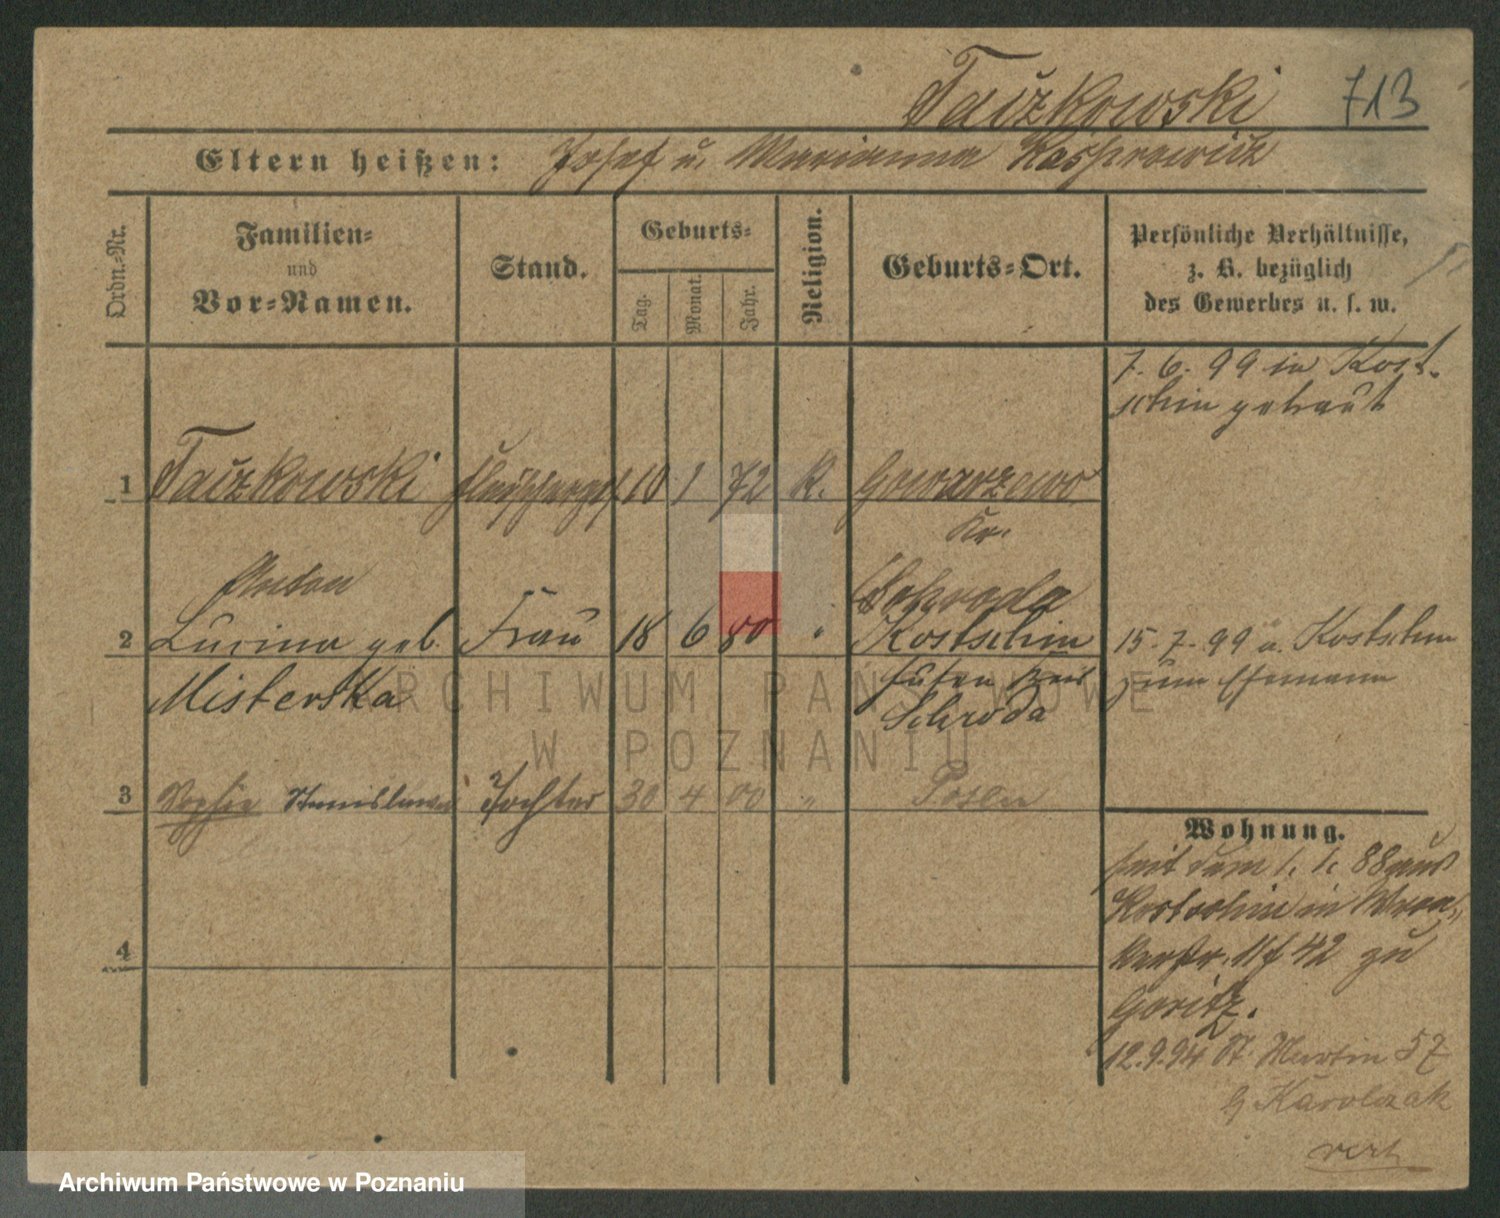 Tauzkowski 713
Eltern heißen: Josef u. Marianna Kasprowicz
Ordn.-Nr.
Familien-
und
Vor-Namen.
Stand.
Geburts-
Tag. Monat. Jahr.
Religion.
Geburts-Ort.
Persönliche Verhältnisse,
z. B. bezüglich
des Gewerbes u. s. w.
7. 6. 99 in Kost-
schin getraut
1 Tauzkowski 10 1 72 K. Gowarzewo
Kr.
Anton Schroda
2 Lucina geb. Frau 18 6 80 " Kostschin 15-7-99 a. Kostschin
Misterska Kreis zum Ehemann
Schroda
3 Sophie Stanislawa Tochter 30 4 00 " Posen
Wohnung.
seit dem 1. 1. 88 aus
Kostschin in Wron-
kerstr. 11 f 42 zu
Goritz.
12.9.94 St. Martin 57
b Karolczak
4
verh
ARCHIWUM PAŃSTWOWE
W POZNANIU
Archiwum Państwowe w Poznaniu